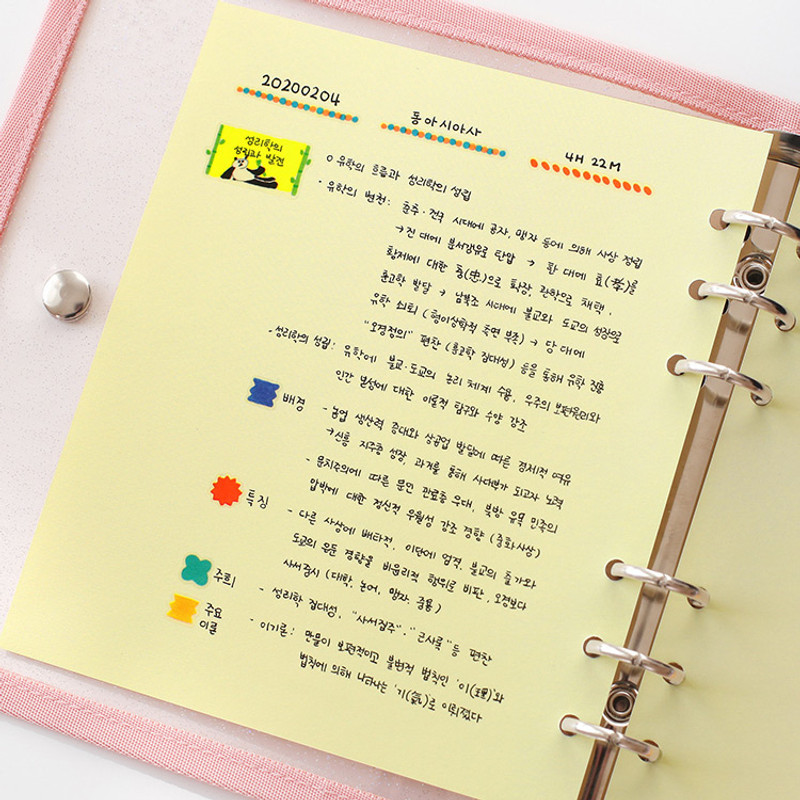 20200204
동아시아사
4H 22M
성리학의
성립과 발전
○ 유학의 흐름과 성리학의 성립
· 유학의 변천: 춘추·전국 시대에 공자, 맹자 등에 의해 사상 정립
→ 진 대에 분서갱유로 탄압 → 한 대에 효(孝)를
황제에 대한 충(忠)으로 확장, 관학으로 채택,
훈고학 발달 → 남북조 시대에 불교와 도교의 성장으로
유학 쇠퇴 (형이상학적 측면 부족) → 당 대에
"오경정의" 편찬 (훈고학 집대성) 등을 통해 유학 진흥
- 성리학의 성립: 유학에 불교·도교의 논리 체계 수용, 우주의 보편원리와
인간 본성에 대한 이론적 탐구와 수양 강조
배경
- 농업 생산력 증대와 상공업 발달에 따른 경제적 여유
→ 신흥 지주층 성장, 과거를 통해 사대부가 되고자 노력
- 문치주의에 따른 문인 관료층 우대, 북방 유목 민족의
압박에 대한 정신적 우월성 강조 경향 (중화사상)
특징
- 다른 사상에 배타적, 이단에 엄격, 불교의 출가와
도교의 은둔 경향을 비윤리적 행위로 비판, 오경보다
사서 중시 (대학, 논어, 맹자, 중용)
주희
- 성리학 집대성, "사서집주"·"근사록" 등 편찬
주요
이론
- 이기론: 만물이 보편적이고 불변적 법칙인 '이(理)'와
법칙에 의해 나타나는 '기(氣)'로 이뤄졌다